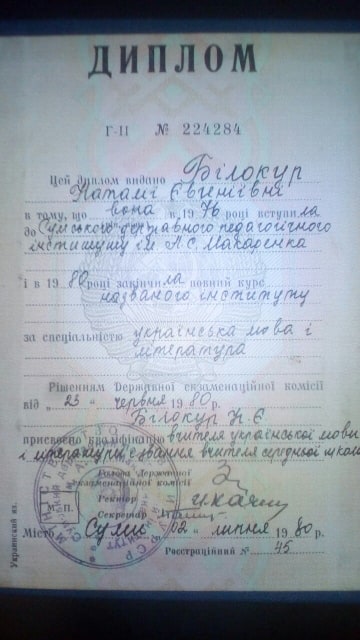 ДИПЛОМ
Г-II № 224284
Цей диплом видано Білокур
Наталії Євгеніївні
в тому, що вона в 1976 році вступила
до Сумського державного педагогічного
інституту ім. А.С. Макаренка
і в 1980 році закінчила повний курс
названого інституту
за спеціальністю українська мова і
література
Рішенням Державної екзаменаційної комісії
від „23“ червня 1980 р.
Білокур Н.Є
присвоєно кваліфікацію вчителя української мови
і літератури є звання вчителя середньої школи
Голова Державної
екзаменаційної комісії
Ректор
Секретар
М.П.
Місто Суми „02“ липня 1980 р.
Реєстраційний № 45
Украинский яз.